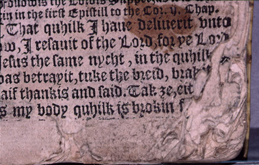 in the first Epistill to the Cor. Chap.
That quhilk I haue deliuerit vnto
ow, I resauit of the Lord, for ye Lord
Jesus the same nycht, in the quhilk
was betrayit, tuke the breid, brak
aif thankis and said. Tak ze, eit
is my body quhilk is brokin f